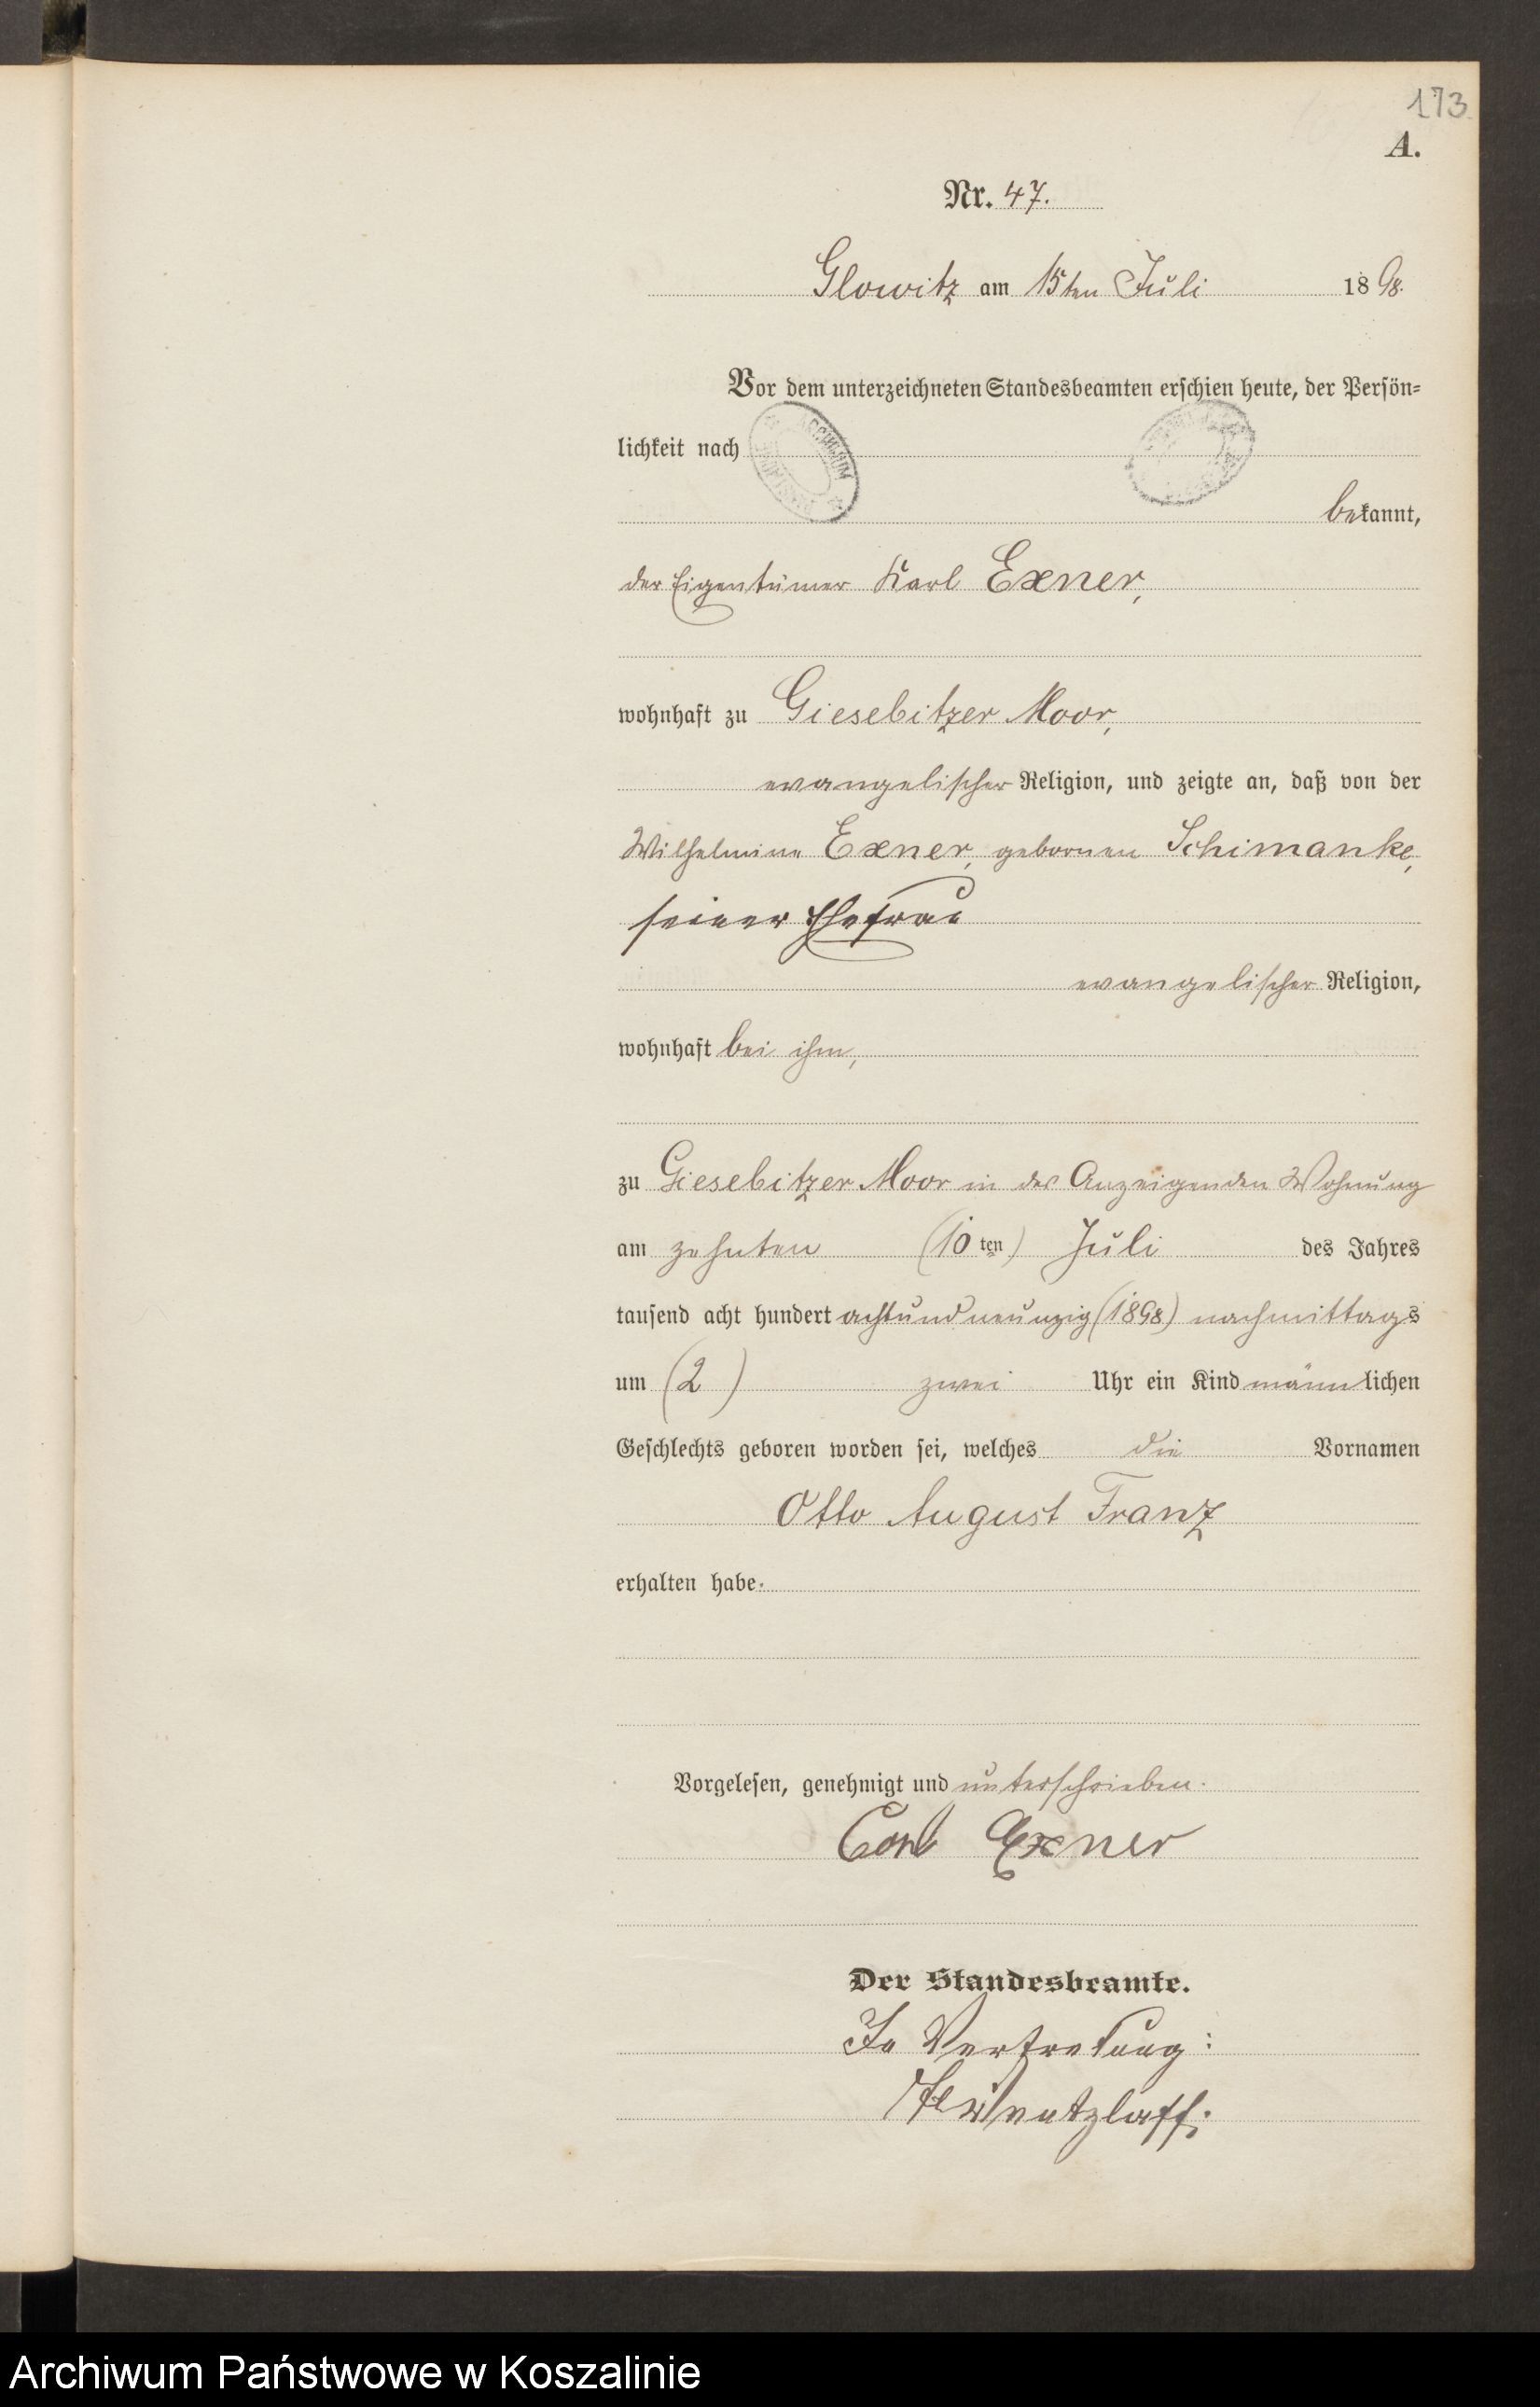 173
A.
Nr. 47.
Glowitz am 15ten Juli 1898.
Vor dem unterzeichneten Standesbeamten erschien heute, der Persön=
lichkeit nach
bekannt,
der Eigentümer Karl Exner,
wohnhaft zu Giesebitzer Moor,
evangelischer Religion, und zeigte an, daß von der
Wilhelmine Exner, gebornen Schimanke,
seiner Ehefrau
evangelischer Religion,
wohnhaft bei ihm,
zu Giesebitzer Moor in des Anzeigenden Wohnung
am zehnten (10ten) Juli des Jahres
tausend acht hundert achtundneunzig (1898) nachmittags
um (2) zwei Uhr ein Kind männlichen
Geschlechts geboren worden sei, welches die Vornamen
Otto August Franz
erhalten habe.
Vorgelesen, genehmigt und unterschrieben.
Carl Exner
Der Standesbeamte.
In Vertretung:
Wentzlaff.
Archiwum Państwowe w Koszalinie